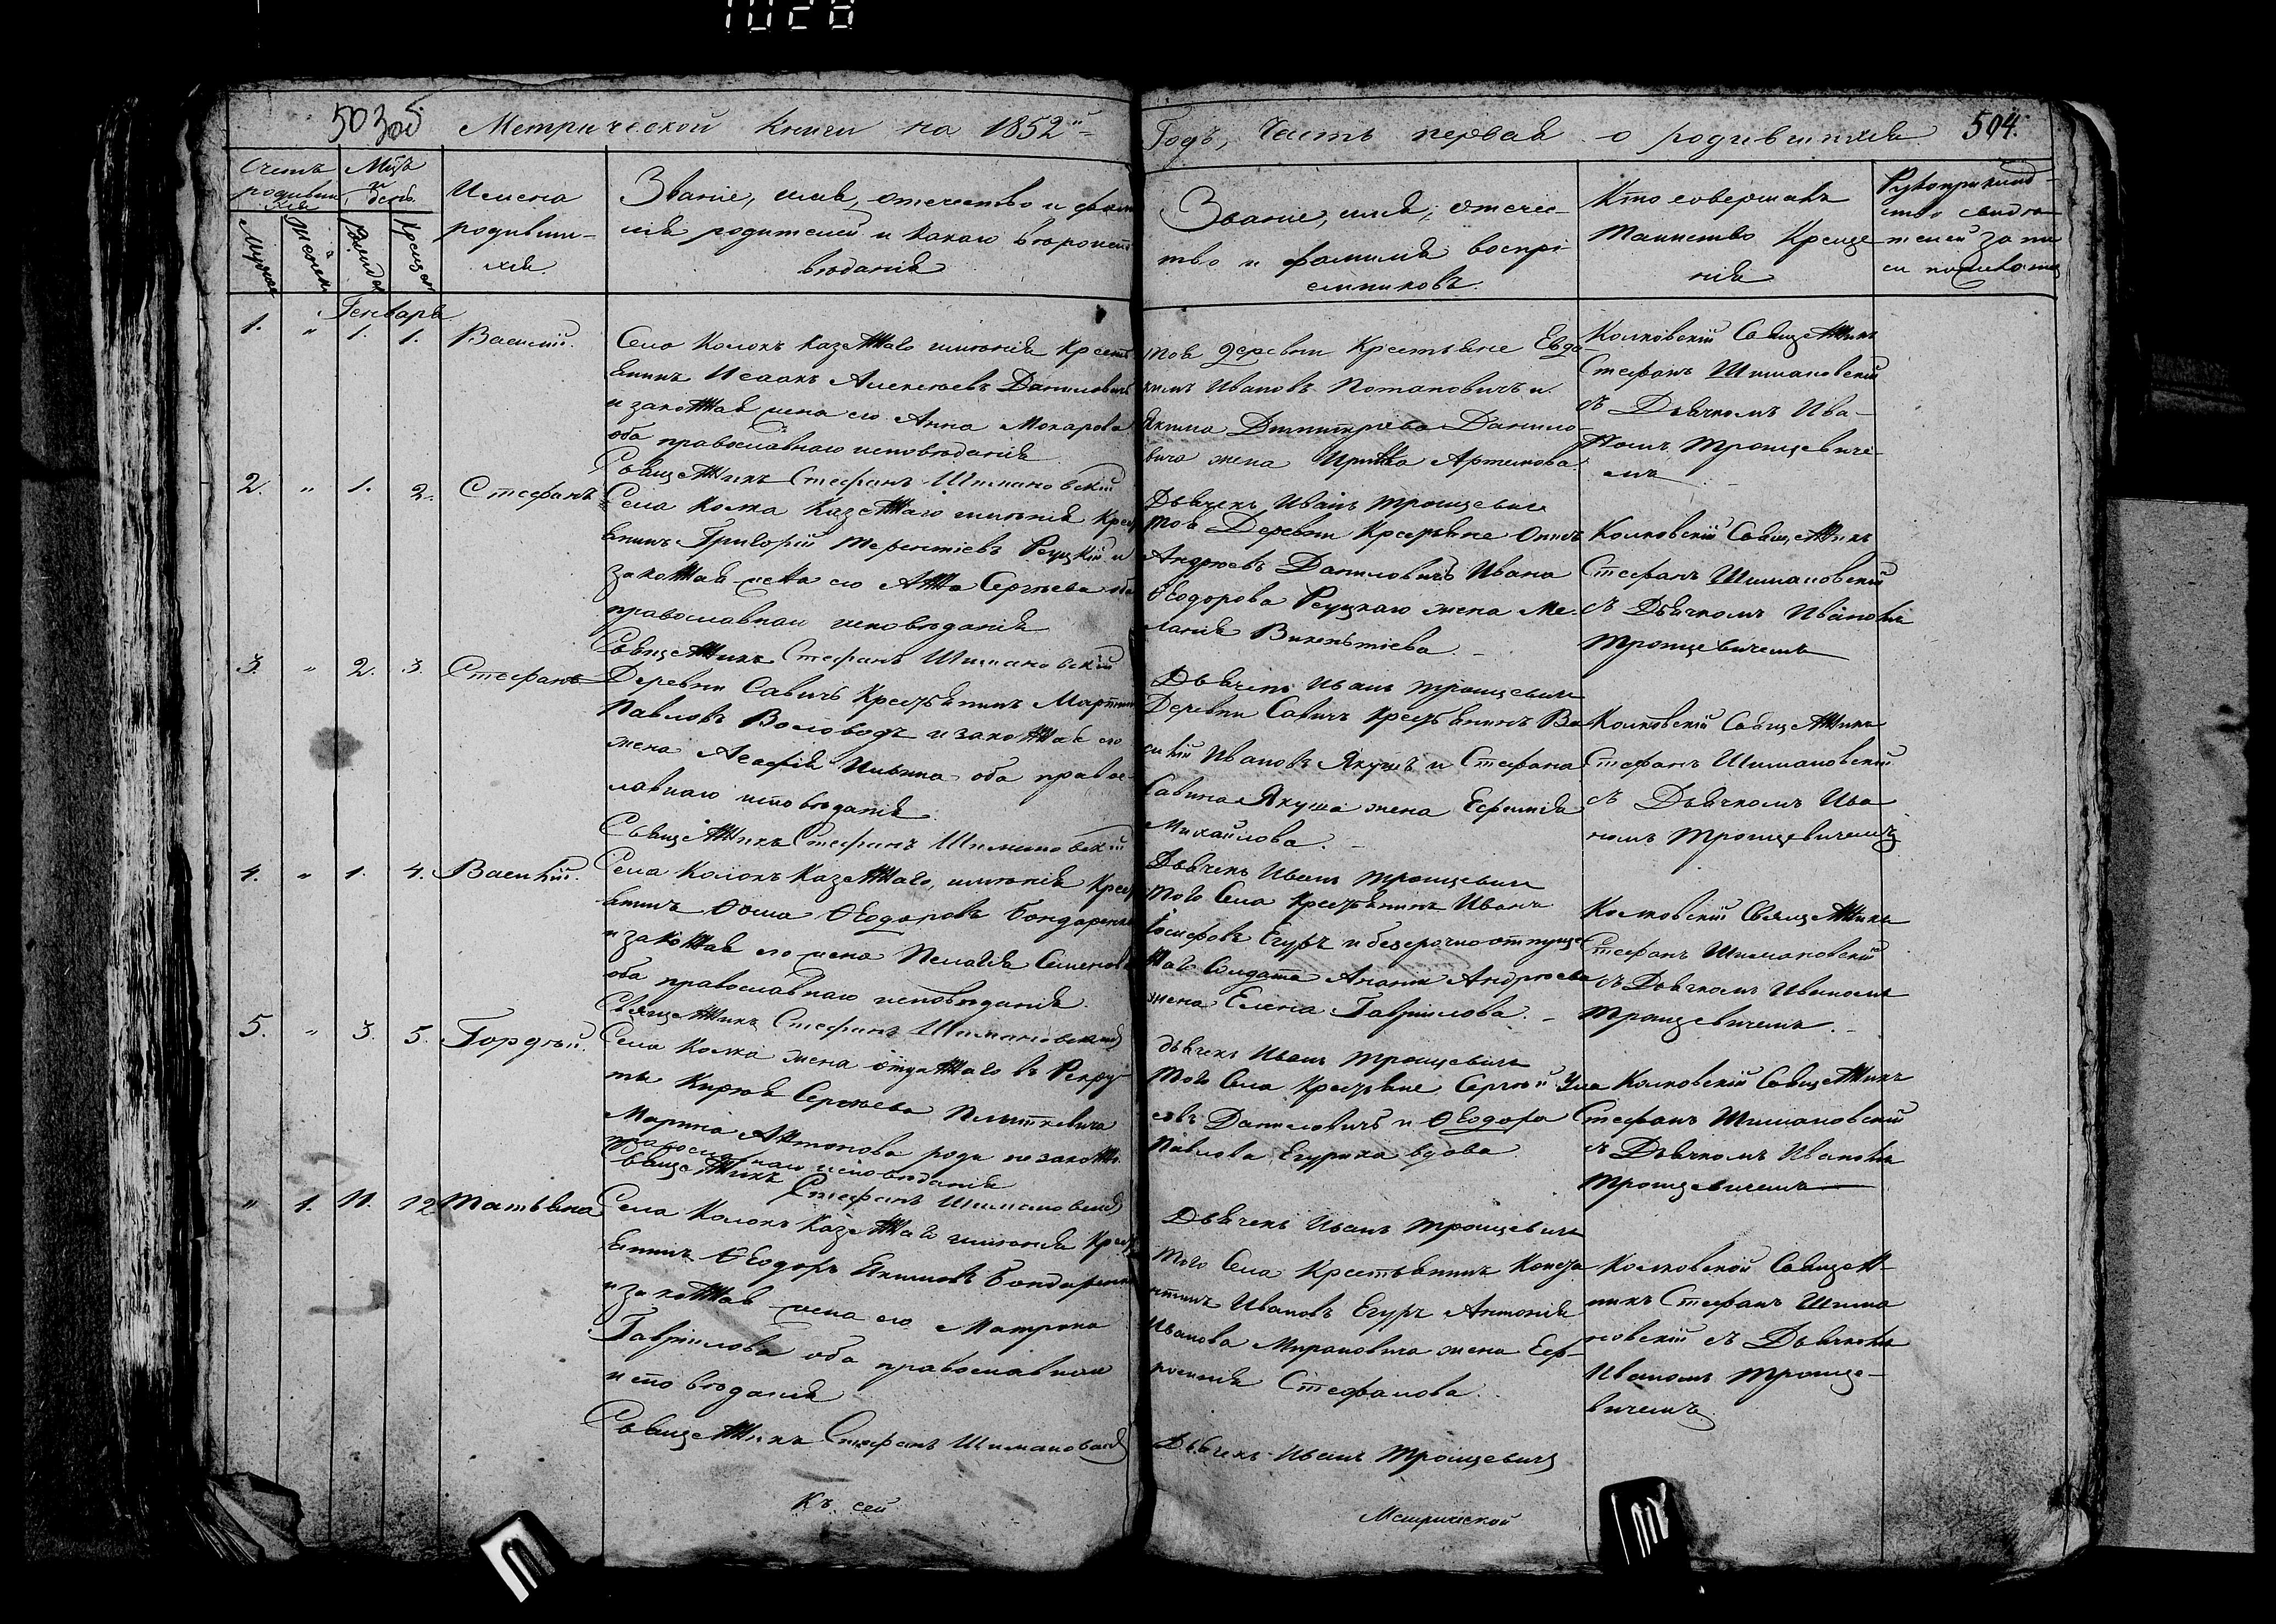 1028
503об Метрической книги на 1852й
Годъ, Часть первая о родившихся 504.
Счетъ родивших ся
Мцъ и день.
Мужеск
Женск
Рожденія
Крещенія
Имена
родивши-
хся.
Званіе, имя, отечество и фами
лія родителей и какого вѣроиспо
вѣданія
Званіе, имя, отечес-
тво и фамилія воспрі-
емниковъ.
Кто совершалъ
таинство Креще
нія
Рукоприклад-
ство свидѣ-
телей запи
си по желанію
Генваря
1. " 1. 1. Василій.
Села Колокъ казеннаго имѣнія Кресть
янинъ Исаакъ Алексѣевъ Даниловичъ
и законная жена его Анна Макарова
оба православнаго исповѣданія
Священникъ Стефанъ Шимановскій
Тоя деревни Крестьяне Евдо-
кимъ Ивановъ Потаповичъ и
Якима Димитріева Данило-
вича жена Ирина Артемова.
Дьячекъ Иванъ Троицевичъ
Колковскій Священникъ
Стефанъ Шимановскій
съ Дьячкомъ Ива-
номъ Троицевиче-
емъ
2. " 1. 2. Стефанъ
Села Колка Казеннаго имѣнія Крест
янинъ Григорій Терентіевъ Реуцкій и
законная жена его Анна Сергѣева оба
православнаго исповѣданія
Священникъ Стефанъ Шимановскій
Тоя Деревни Крестьяне
Андреевъ Даниловичъ Ивана
Ѳеодорова Реуцкаго жена Ме-
ланія Викентіева
Дьячекъ Иванъ Троицевичъ
Колковскій Священникъ
Стефанъ Шимановскій
съ Дьячкомъ Иваномъ
Троицевичемъ
3. " 2. 3. Стефанъ
Деревни Савичъ Крестьянинъ Мартинъ
Павловъ Воловодъ и законная его
жена Агафія Ильина оба правос-
лавнаго исповѣданія.
Священникъ Стефанъ Шимановскій
Деревни Савичъ Крестьянинъ Ва
силій Ивановъ Якушъ и Стефана
Савина Якуша жена Ефимія
Михайлова.
Дьячекъ Иванъ Троицевичъ
Колковскій Священникъ
Стефанъ Шимановскій
съ Дьячкомъ Ива
номъ Троицевичемъ
4. " 1. 4. Василій.
Села Колокъ Казеннаго, имѣнія Крест
янинъ Ѳома Ѳеодоровъ Бондаренко
и законная его жена Пелагія Семенова
оба православнаго исповѣданія
Священникъ Стефанъ Шимановскій
Того Села Крестьянинъ Иванъ
Іосифовъ Егуръ и безсрочноотпущен
наго Солдата Ананія Андреева
жена Елена Гавріилова.
Дьячекъ Иванъ Троицевичъ
Колковскій Священникъ
Стефанъ Шимановскій
съ Дьячкомъ Иваномъ
Троицевичемъ.
5. " 3. 5. Гордѣй.
Села Колка жена отданнаго въ Рекру-
ты Сергѣева
Марина Антонова роди незаконно
православнаго исповѣданія
Священникъ Стефанъ Шимановскій
Того Села Крестьяне Сергѣй
Даниловичъ и Ѳеодора
Павлова Егуриха вдова
Дьячекъ Иванъ Троицевичъ
Колковскій Священникъ
Стефанъ Шимановскій
съ Дьячкомъ Иваномъ
Троицевичемъ
" 1. 11. 12 Татьяна
Села Колокъ Казеннаго имѣнія Крест
янинъ Ѳеодоръ Якимовъ Бондаренко
и законная жена его Матрона
Гавріилова оба православнаго
исповѣданія
Священникъ Стефанъ Шимановскій
Того Села Крестьянинъ Конста
нтинъ Ивановъ Егуръ Антонія
Иванова Мироновича жена Еф-
росинія Стефанова.
Дьячекъ Иванъ Троицевичъ
Колковской Священ-
никъ Стефанъ Шима
новскій съ Дьячкомъ
Иваномъ Троице-
вичемъ
Къ сей
Метрической